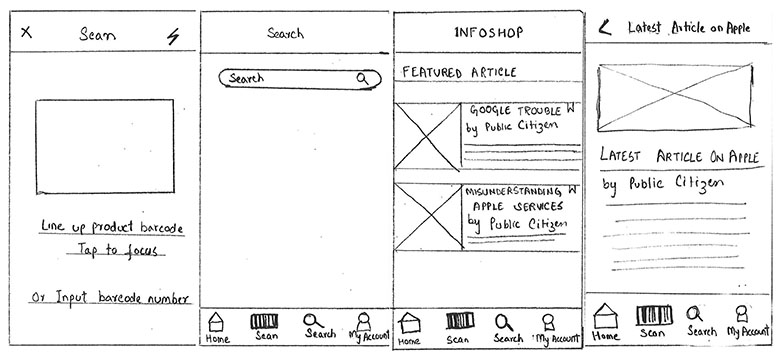 Scan
Line up product barcode
Tap to focus
Or Input barcode number
Search
Search
Home Scan Search My Account
INFOSHOP
FEATURED ARTICLE
GOOGLE TROUBLE W
by Public Citizen
MISUNDERSTANDING W
APPLE SERVICES
by Public Citizen
Home Scan Search My Account
Latest Article on Apple
LATEST ARTICLE ON APPLE
by Public Citizen
Home Scan Search My Account